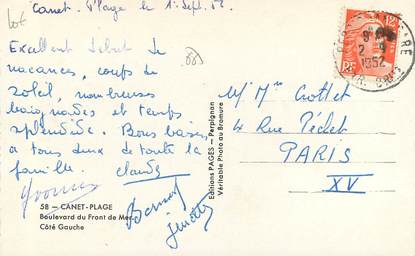 Canet-Plage le 1er Sept. 52
Excellent début de
vacances, coups de
soleil, nombreuses
baignades et temps
splendide. Bons baisers
à tous deux de toute la
famille. Claude
Yvonne
Bernard
58 — CANET-PLAGE
Boulevard du Front de Mer
Côté Gauche
Editions PAGES - Perpignan
Véritable Photo au Bromure
2 - 9
1952
RF
M. Mme Crottet
4 Rue Péclet
PARIS
XV